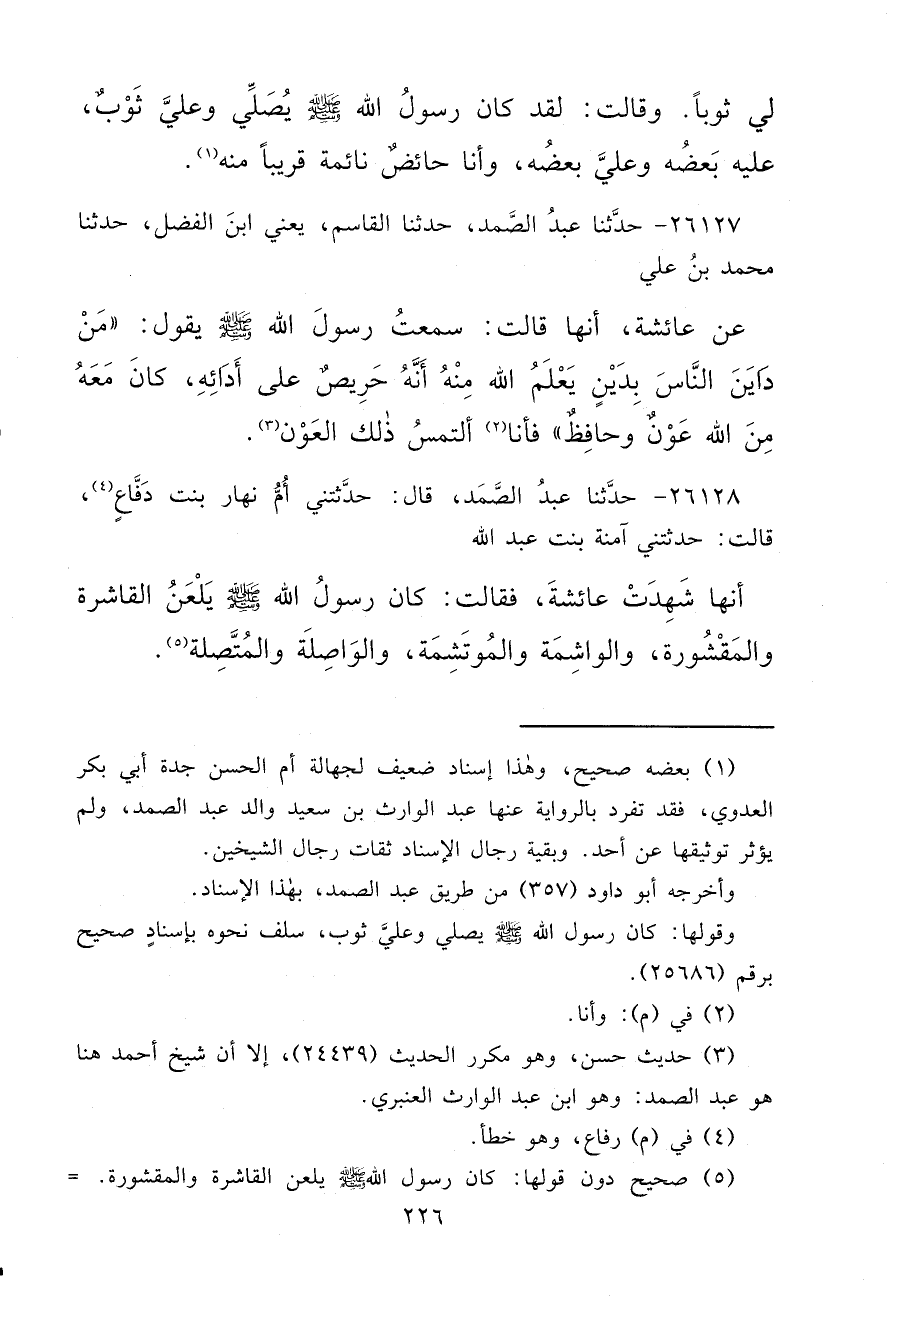 لي ثوباً. وقالت: لقد كان رسولُ الله ﷺ يُصَلِّي وعليَّ ثَوْبٌ،
عليه بَعضُه وعليَّ بعضُه، وأنا حائضٌ نائمة قريباً منه(١).
٢٦١٢٧- حدَّثنا عبدُ الصَّمد، حدثنا القاسم، يعني ابنَ الفضل، حدثنا
محمد بنُ علي
عن عائشة، أنها قالت: سمعتُ رسولَ الله ﷺ يقول: «مَنْ
دَايَنَ النَّاسَ بِدَيْنٍ يَعْلَمُ الله مِنْهُ أَنَّهُ حَرِيصٌ على أَدَائِهِ، كانَ مَعَهُ
مِنَ الله عَوْنٌ وحافِظٌ» فأنا(٢) ألتمسُ ذٰلك العَوْن(٣).
٢٦١٢٨- حدَّثنا عبدُ الصَّمَد، قال: حدَّثتني أُمُّ نهار بنت دَفَّاعٍ(٤)،
قالت: حدثتني آمنة بنت عبد الله
أنها شَهِدَتْ عائشةَ، فقالت: كان رسولُ الله ﷺ يَلْعَنُ القاشرة
والمَقْشُورة، والواشِمَة والمُوتَشِمَة، والوَاصِلَة والمُتَّصِلة(٥).
(١) بعضه صحيح، وهٰذا إسناد ضعيف لجهالة أم الحسن جدة أبي بكر
العدوي، فقد تفرد بالرواية عنها عبد الوارث بن سعيد والد عبد الصمد، ولم
يؤثر توثيقها عن أحد. وبقية رجال الإسناد ثقات رجال الشيخين.
وأخرجه أبو داود (٣٥٧) من طريق عبد الصمد، بهٰذا الإسناد.
وقولها: كان رسول الله ﷺ يصلي وعليَّ ثوب، سلف نحوه بإسنادٍ صحيح
برقم (٢٥٦٨٦).
(٢) في (م): وأنا.
(٣) حديث حسن، وهو مكرر الحديث (٢٤٤٣٩)، إلا أن شيخ أحمد هنا
هو عبد الصمد: وهو ابن عبد الوارث العنبري.
(٤) في (م) رفاع، وهو خطأ.
(٥) صحيح دون قولها: كان رسول الله ﷺ يلعن القاشرة والمقشورة. =
٢٢٦